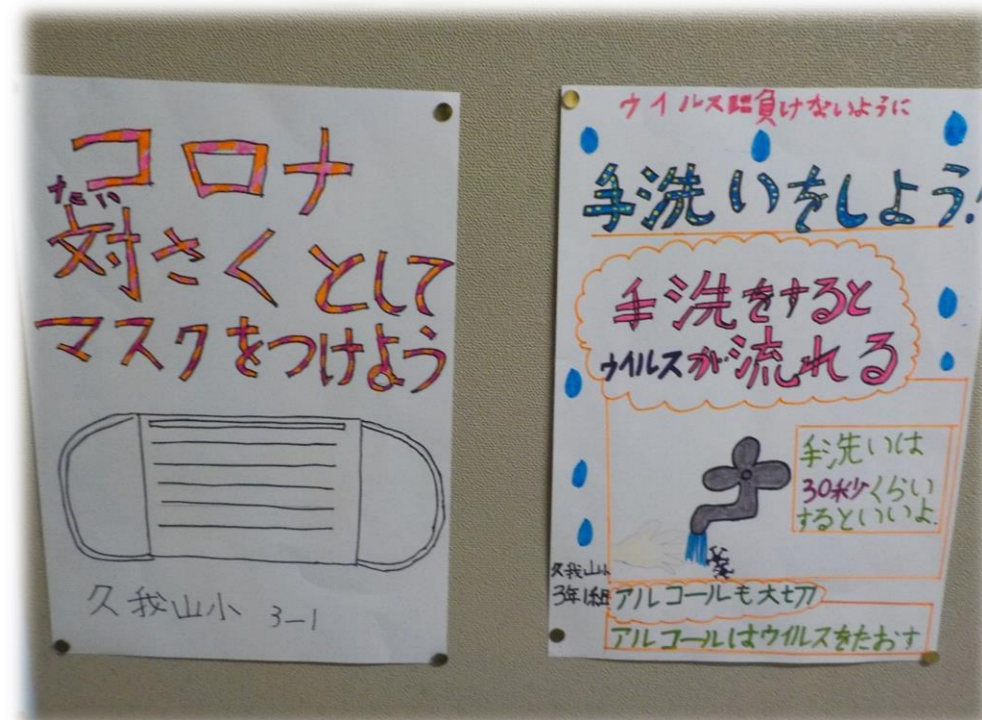 コロナ
たい
対さくとして
マスクをつけよう
久我山小 3-1
ウイルスに負けないように
手洗いをしよう!
手洗をすると
ウイルスが流れる
手洗いは
30秒くらい
するといいよ.
久我山小
3年1組
アルコールも大切
アルコールはウイルスをたおす